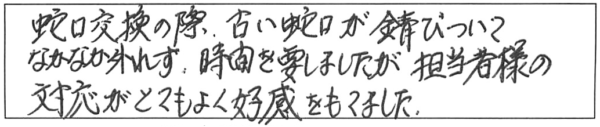 蛇口交換の際、古い蛇口が錆びついて
なかなか外れず、時間を要しましたが担当者様の
対応がとてもよく好感をもてました。